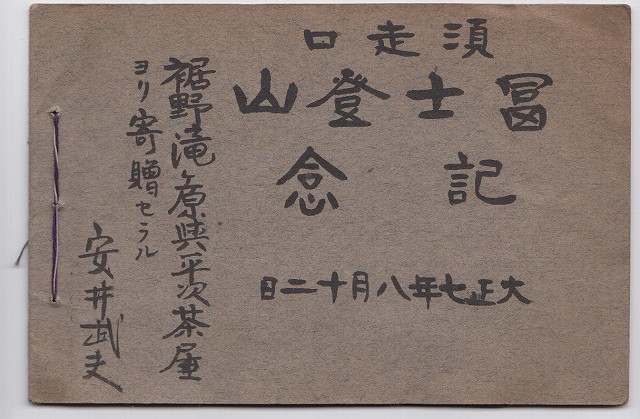 須走口
冨士登山
記念
大正七年八月十二日
裾野滝ヶ原與平次茶屋
ヨリ寄贈セラル
安井武夫